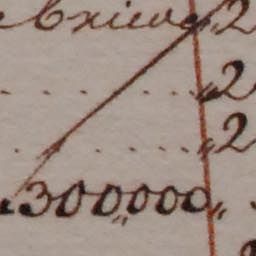 "2
. . . . . . "2
. . . . . . "2
300,000"